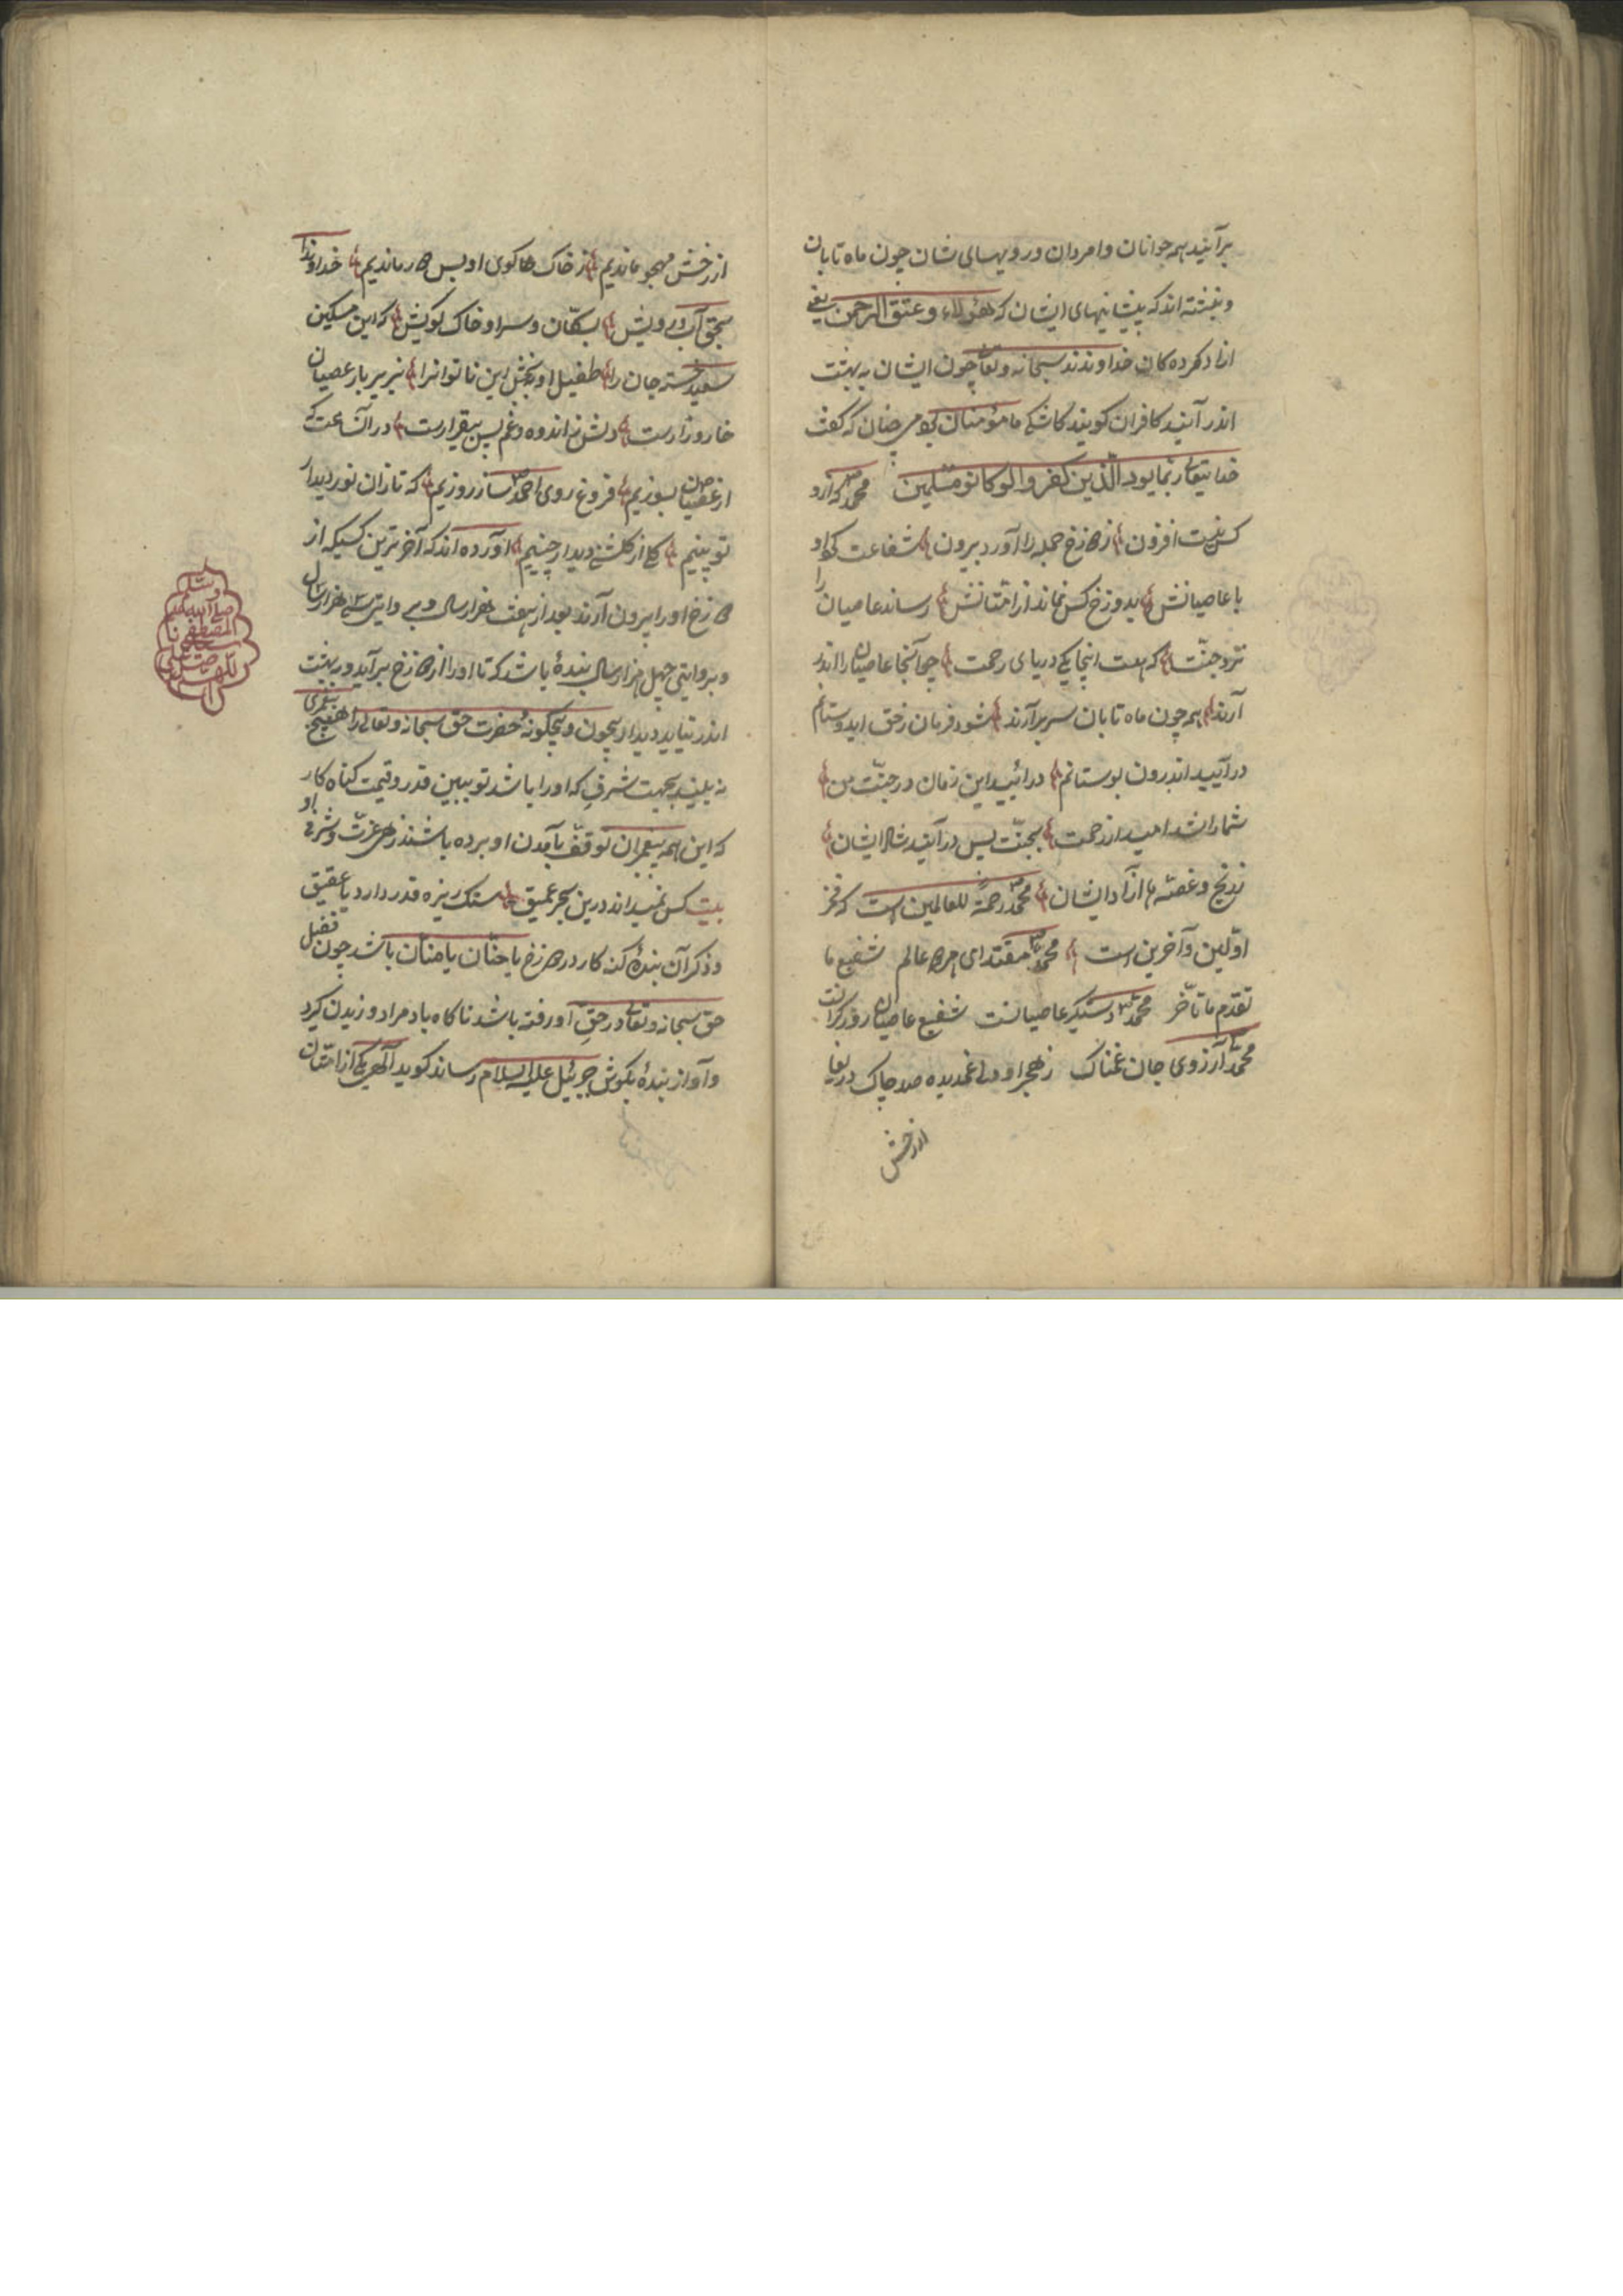 برآیند همه جوانان و امردان و رویهای شان چون ماه تابان
و نبشته اند که پیشانیهای ایشان که هؤلاء و عتق الرحمن یعنی
ازاد کرده کان خداوندند سبحانه و تعا چون ایشان به بهشت
اندر آیند کافران کویند کاشکے ما مؤمنان بودمی چنان که گفت
خدایتعا ربما یود الذین کفروا لو کانو مسلمین محمد که ازو
کس نیست افزون زدوزخ جمله را آورد بیرون شفاعت کو او
با عاصیانش بدوزخ کس نماند از امتانش رساند عاصیان را
نزد جنت که هست اینجا یکے دریای رحمت چو آنجا عاصیان را اندر
آرند همه چون ماه تابان سر برآرند شود فرمان زحق ای دوستانم
درآیید اندرون بوستانم درائید این زمان در جنت من
شما را شد امید از رحمت بجنت پس درآیند شاد ایشان
زرنج و غصه ها ازاد ایشان محمد رحمة للعالمین است که فخر
اولین و آخرین است محمد مقتدای هر دو عالم شفیع ما
تقدم ما تأخر محمد دستکیر عاصیانست شفیع عاصیان روز کرانست
محمد آرزوی جان غمناک زهجر او دلے غمدیده صد چاک دریغا
از رخش
از رخش مهجور ماندیم ز خاک کوی او بس دور ماندیم خداوندا
بحق آب رویش بسکان و سرا و خاک کویش که این مسکین
سعید خسته جان را طفیل او بخش این ناتوانرا بزیر بار عصیان
خار و زارست دلش ز اندوه و غم بس بیقرارست در آن ساعت که
از عصیان بسوزیم فروغ روی احمد ساز روزیم که تا زان نور دیدار
تو بینیم کلے از کلشن دیدار چنیم اورده اند که آخر ترین کسیکه از
دوزخ او را بیرون آرند بعد از هفت هزار سال و بروایتی سے هزار سال
و بروایتی چهل هزار سال بندۀ باشد که تا او را از دوزخ برآید و در بهشت
اندر نیاید دیدار بیچون و بیچکونۀ حضرت حق سبحانه و تعالی را هیچ پیغمبری
نه بیند بجهت شرف که او را باشد تو ببین قدر و قیمت کناه کار
که این همه پیغمبران توقف بآمدن او برده باشند زهی عزت و شرف او
بیت کس نمیداند درین بحر عمیق سنک ریزه قدر دارد یا عقیق
و ذکر آن بندۀ کنه کار در دوزخ یا حنان یا منان باشد چون فضل
حق سبحانه و تعا در حق او رفته باشد ناکاه باد مراد وزیدن کیرد
و آواز بندۀ بکوش جبرئیل علیه السلام رساند کوید الهی یکے از امتان
اللهم صل علی
المصطفی
صلی الله علیه
وسلم